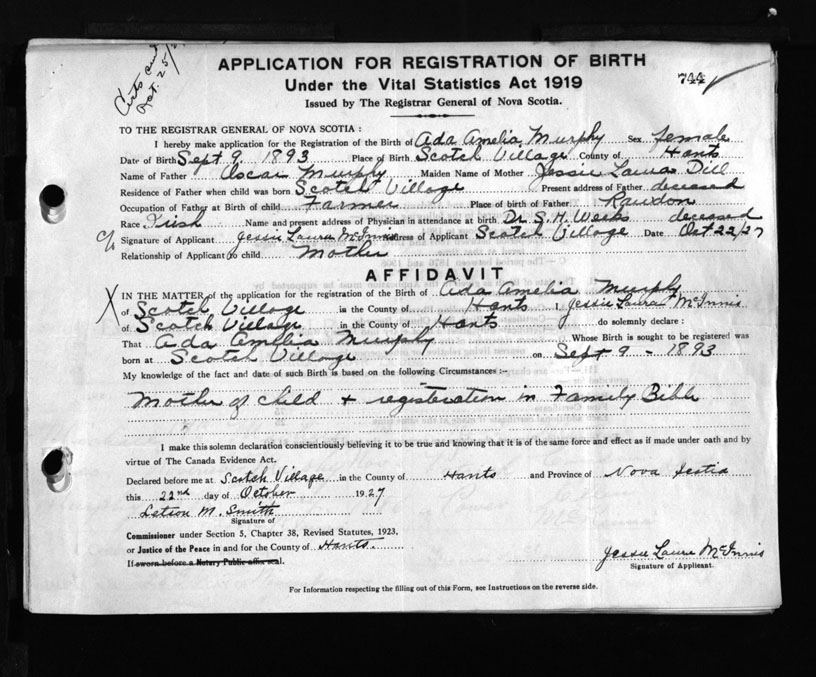 Certs and
Oct. 25/2
APPLICATION FOR REGISTRATION OF BIRTH
Under the Vital Statistics Act 1919
744
Issued by The Registrar General of Nova Scotia.
TO THE REGISTRAR GENERAL OF NOVA SCOTIA :
I hereby make application for the Registration of the Birth of Ada Amelia Murphy Sex female
Date of Birth Sept 9. 1893 Place of Birth Scotch Village County of Hants
Name of Father Oscar Murphy Maiden Name of Mother Jessie Laura Dill
Residence of Father when child was born Scotch Village Present address of Father deceased
Occupation of Father at Birth of child Farmer Place of birth of Father Rawdon
Race Irish Name and present address of Physician in attendance at birth Dr S. H. Weeks deceased
Signature of Applicant Jessie Laura McInnis Address of Applicant Scotch Village Date Oct 22/27
Relationship of Applicant to child Mother
AFFIDAVIT
IN THE MATTER of the application for the registration of the Birth of Ada Amelia Murphy
of Scotch Village in the County of Hants I, Jessie Laura McInnis
of Scotch Village in the County of Hants do solemnly declare :
That Ada Amelia Murphy Whose Birth is sought to be registered was
born at Scotch Village on Sept 9 - 1893
My knowledge of the fact and date of such Birth is based on the following Circumstances :-
Mother of child + registeration in Family Bible
I make this solemn declaration conscientiously believing it to be true and knowing that it is of the same force and effect as if made under oath and by
virtue of The Canada Evidence Act.
Declared before me at Scotch Village in the County of Hants and Province of Nova Scotia
this 22nd day of October 1927
Letson M. Smith
Signature of
Commissioner under Section 5, Chapter 38, Revised Statutes, 1923.
or Justice of the Peace in and for the County of Hants.
If sworn before a Notary Public affix seal.
Jessie Laura McInnis
Signature of Applicant.
For Information respecting the filling out of this Form, see Instructions on the reverse side.